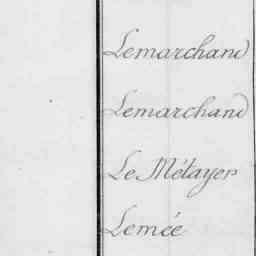 Lemarchand
Lemarchand
Le Métayer
Lemée